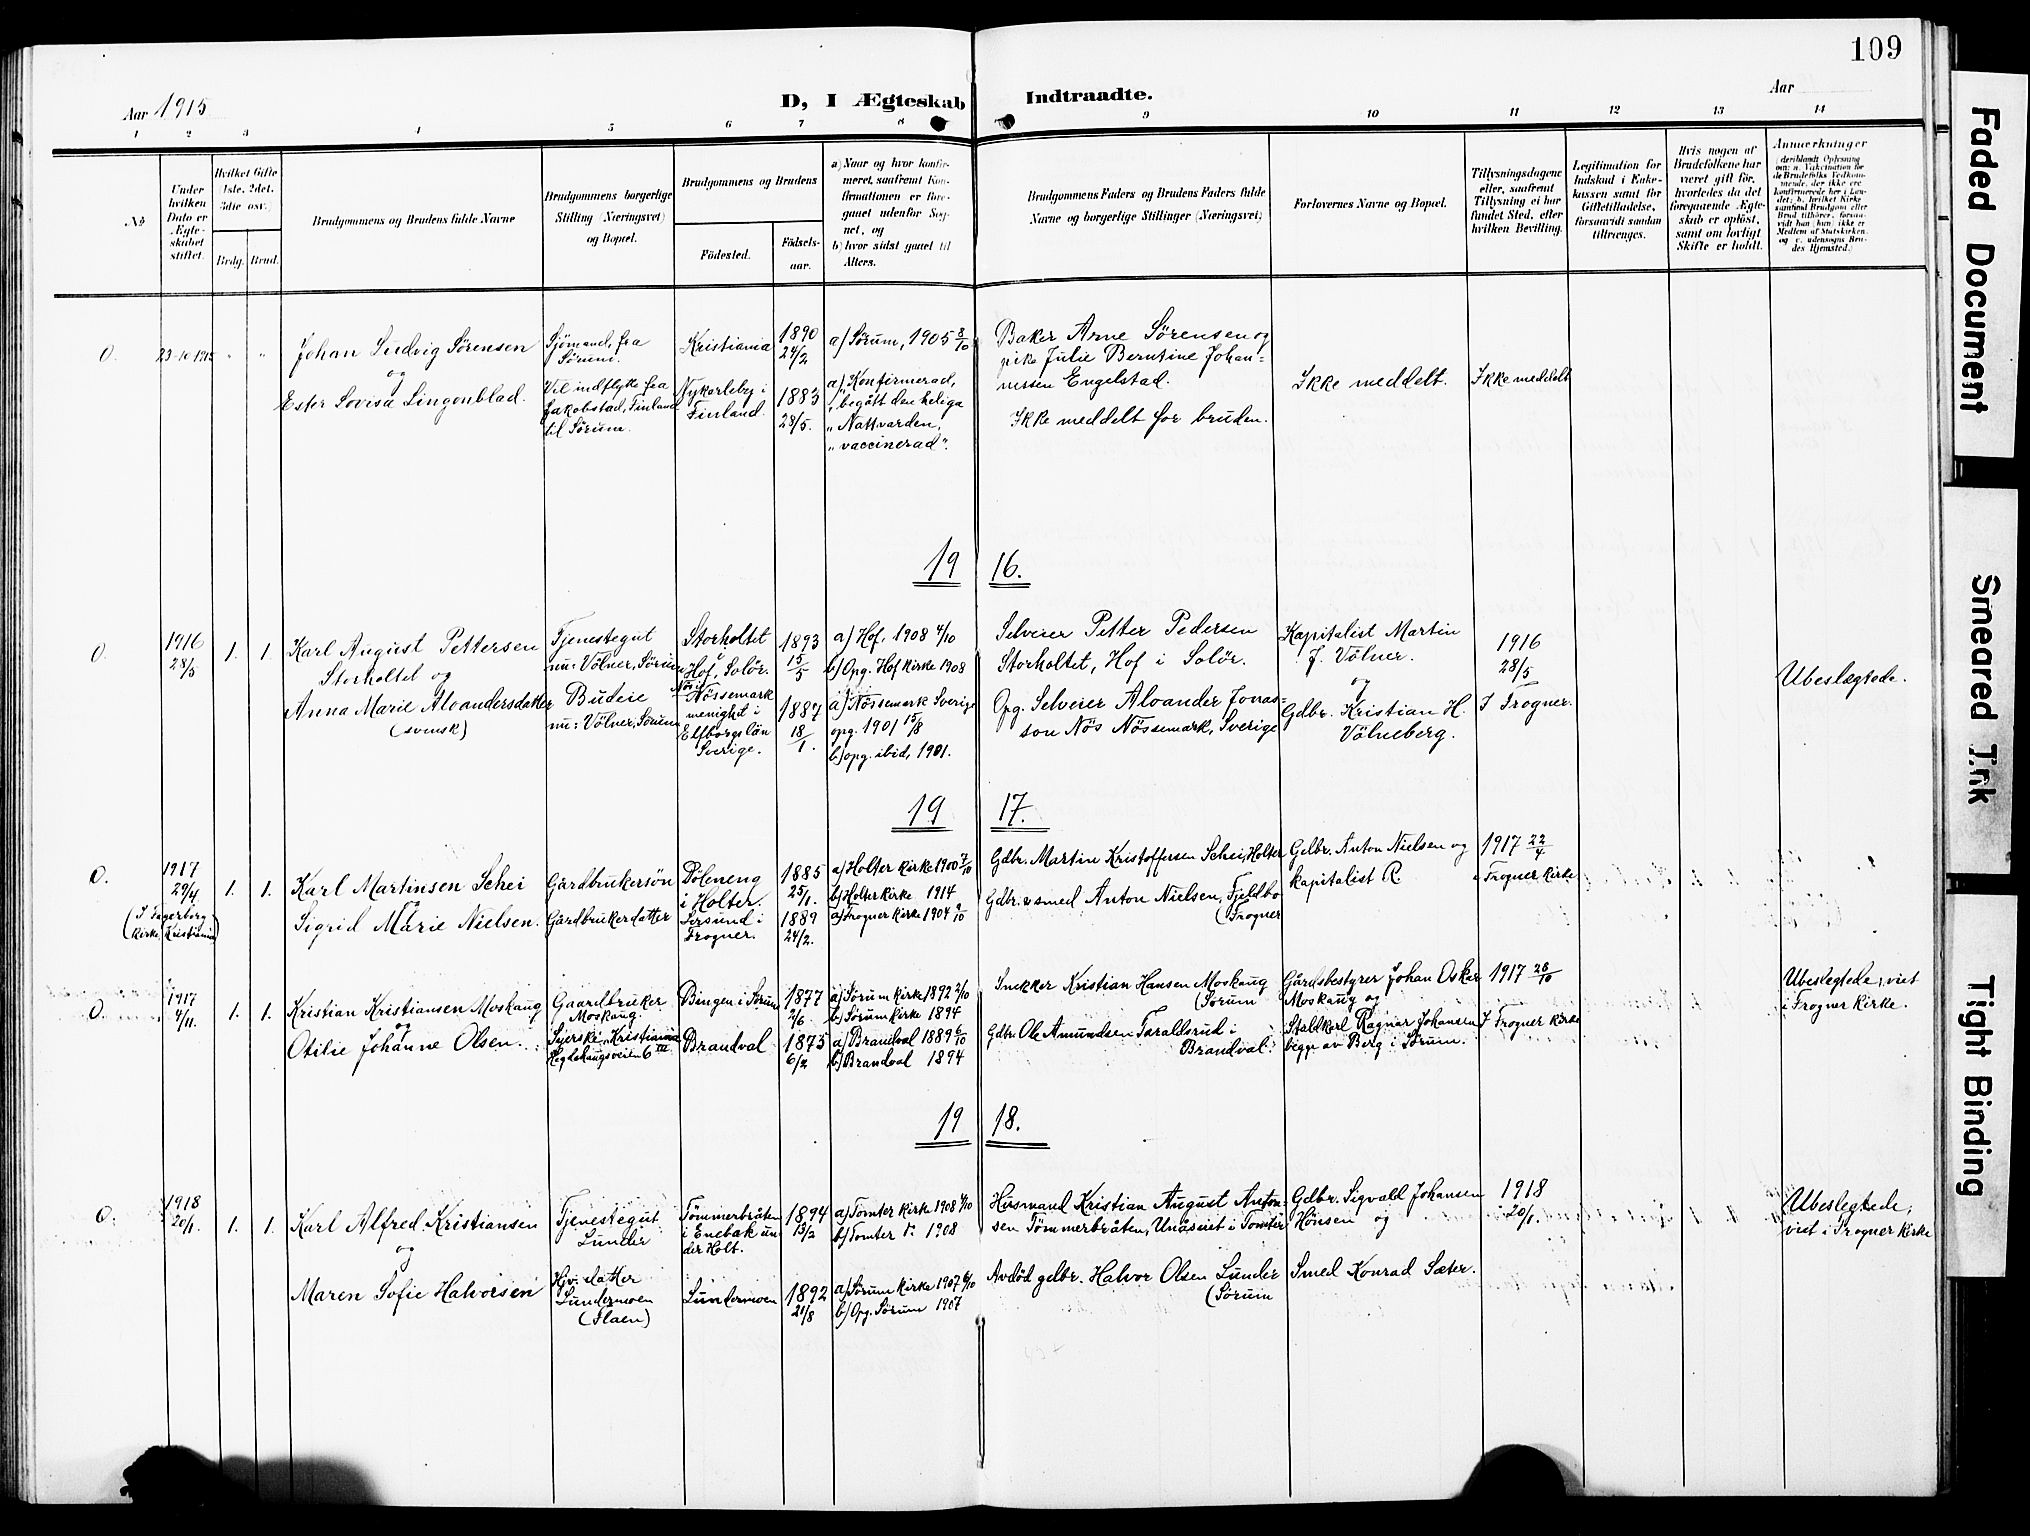 109
Aar 1915
D, I Ægteskab Indtraadte.
Aar
1 2 3 4 5 6 7 8 9 10 11 12 13 14
No
Under
hvilken
Dato er
Ægte-
skabet
stiftet.
Hvilket Gifte
(1ste, 2det,
3die osv.)
Brdg.
Brud.
Brudgommens og Brudens fulde Navne
Brudgommens borgerlige
Stilling (Næringsvei)
og Bopæl.
Brudgommens og Brudens
Födested.
Födsels-
aar.
a) Naar og hvor konfir-
meret, saafremt Kon-
firmationen er fore-
gaaet udenfor Sog-
net, og
b) hvor sidst gaaet til
Alters.
Brudgommens Faders og Brudens Faders fulde
Navne og borgerlige Stillinger (Næringsvei)
Forlovernes Navne og Bopæl.
Tillysningsdagene
eller, saafremt
Tillysning ei har
fundet Sted, efter
hvilken Bevilling.
Legitimation for
Indskud i Enke-
kassen samt for
Giftetilladelse,
forsaavidt saadan
tiltrænges.
Hvis nogen af
Brudefolkene har
været gift før,
hvorledes da det
foregaaende Ægte-
skab er opløst,
samt om lovligt
Skifte er holdt.
Anmerkninger
(deriblandt Oplysning
om: a. Vakcination for
de Brudefolks Vedkom-
mende, der ikke ere
konfirmerede her i Lan-
det; b. hvilket Kirke-
samfund Brudgom eller
Brud tilhører, forsaa-
vidt han (hun) ikke er
Medlem af Statskirken,
og c. udensogns Bru-
des Hjemsted.)
O. 23-10-1915 " "
Johan Ludvig Sörensen
og
Ester Lovisa Lingonblad.
Sjömand, fra
Sörum.
Vil indflytte fra
Jakobstad, Finland
til Sörum.
Kristiania
Nykarleby i
Finland.
1890
24/2
1883
28/5.
a) Sörum, 1905 8/10
a) "Konfirmerad,
"begått den heliga
"Nattvarden,
"vaccinerad".
Baker Arne Sörensen og
pike Julie Berntine Johan-
nessen Engelstad.
Ikke meddelt for bruden.
Ikke meddelt.
Ikke meddelt
19 16.
O. 1916
28/5
1. 1.
Karl August Pettersen
Storholtet og
Anna Marie Alvandersdatter
(svensk)
Tjenestegut
nu: Völner, Sörum
Budeie
nu: Völner, Sörum
Storholtet
i
Hof, Solör.
Nös i
Nössemark
menighet i
Elfborgs län
Sverige.
1893
15/5
1887
18/1.
a) Hof, 1908 4/10
b) Opg. Hof Kirke 1908
a) Nössemark Sverige
opg. 1901 15/8
b) opg. ibid, 1901.
Selveier Petter Pedersen
Storholtet, Hof i Solör.
Opg. Selveier Alvander Jonas-
son Nös Nössemark, Sverige
Kapitalist Martin
J. Völner.
og
Gdbr. Kristian H.
Völneberg.
1916
28/5
I Frogner.
Ubeslegtede.
19 17.
O. 1917
29/4
(I Fagerborg
kirke, Kristiania)
1. 1.
Karl Martinsen Schei
og
Sigrid Marie Nielsen.
Gårdbrukersön
Gårdbrukerdatter
Pöleneng
i Holter.
Sersund i
Frogner.
1885
25/1.
1889
24/2.
a) Holter kirke 1900 7/10
b) Holter kirke 1914
a) Frogner kirke 1904 9/10
Gdbr. Martin Kristoffersen Schei, Holter
Gdbr. & smed Anton Nielsen, Fjeldbo
(Frogner
Gdbr. Anton Nielsen og
kapitalist R
1917 22/4
i Frogner kirke
O. 1917
4/11.
1. 1.
Kristian Kristiansen Moskaug
og
Otilie Johanne Olsen.
Gaardbruker
Moskaug.
Syerske, Kristiania
Hegdehaugsveien 6 III
Bingen i Sörum
Brandval
1877
2/6
1873
6/2
a) Sörum kirke 1892 2/10
b) Sörum kirke 1894
a) Brandval 1889 6/10
b) Brandval 1894
Snekker Kristian Hansen Moskaug
(Sörum
Gdbr. Ole Amundsen Taraldsrud i
Brandval.
Gårdsbestyrer Johan Oskar
Moskaug og
Staldkarl Ragnar Johansen
begge av Berg i Sörum.
1917 28/10
I Frogner kirke
Ubeslegtede, viet
i Frogner kirke.
19 18.
O. 1918
20/1.
1. 1.
Karl Alfred Kristiansen
og
Maren Sofie Halvorsen
Tjenestegut
Lunder
Hjv. datter
Lundermoen
Tömmerbråten
i Enebak un-
der Holt.
Lundermoen
1894
13/2
1892
21/8
a) Tomter kirke 1908 4/10
b) Tomter k. 1908
a) Sörum kirke 1907 6/10
b) Opg. Sörum 1907
Husmand Kristian August Anton-
sen Tömmerbråten, Unåsvet i Tomter
Avdöd gdbr. Halvor Olsen Lunder
(Sörum
Gdbr. Sigvald Johansen
Hönsen og
Smed Konrad Sæter.
1918
20/1.
Ubeslegtede,
viet i Frogner kirke
Faded Document
Smeared Ink
Tight Binding